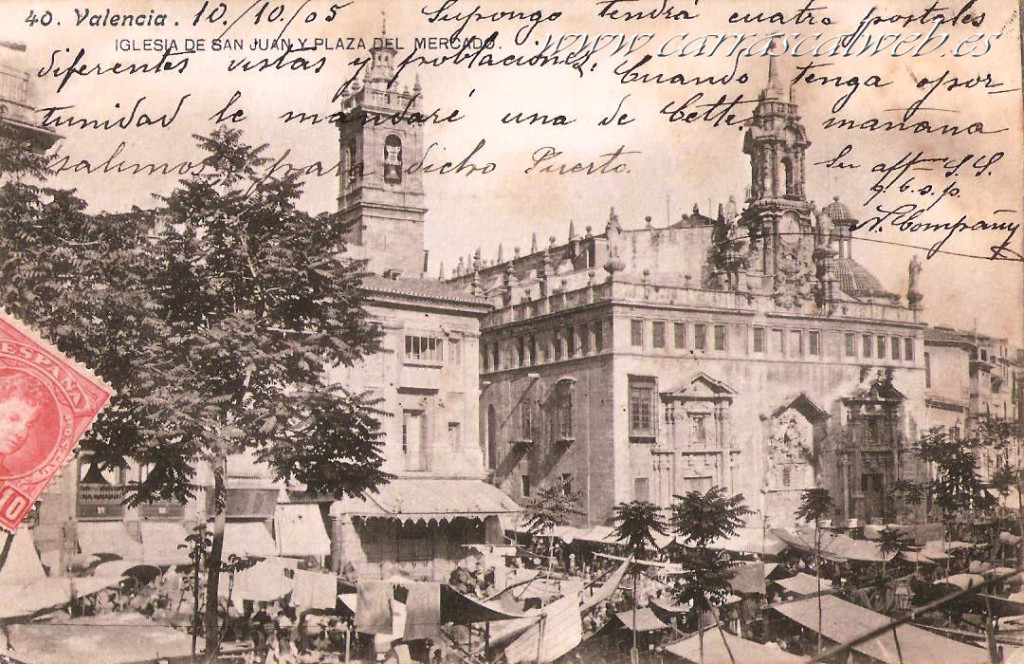 40. Valencia. 10/10/05 Supongo tendrá cuatro postales
IGLESIA DE SAN JUAN Y PLAZA DEL MERCADO.
www.carrascalweb.es
diferentes vistas y poblaciones. Cuando tenga opor-
tunidad le mandaré una de Cette, mañana
salimos para dicho Puerto.
Su aff S.S.
q.b.s.p.
N. Compañy
ESPAÑA
10